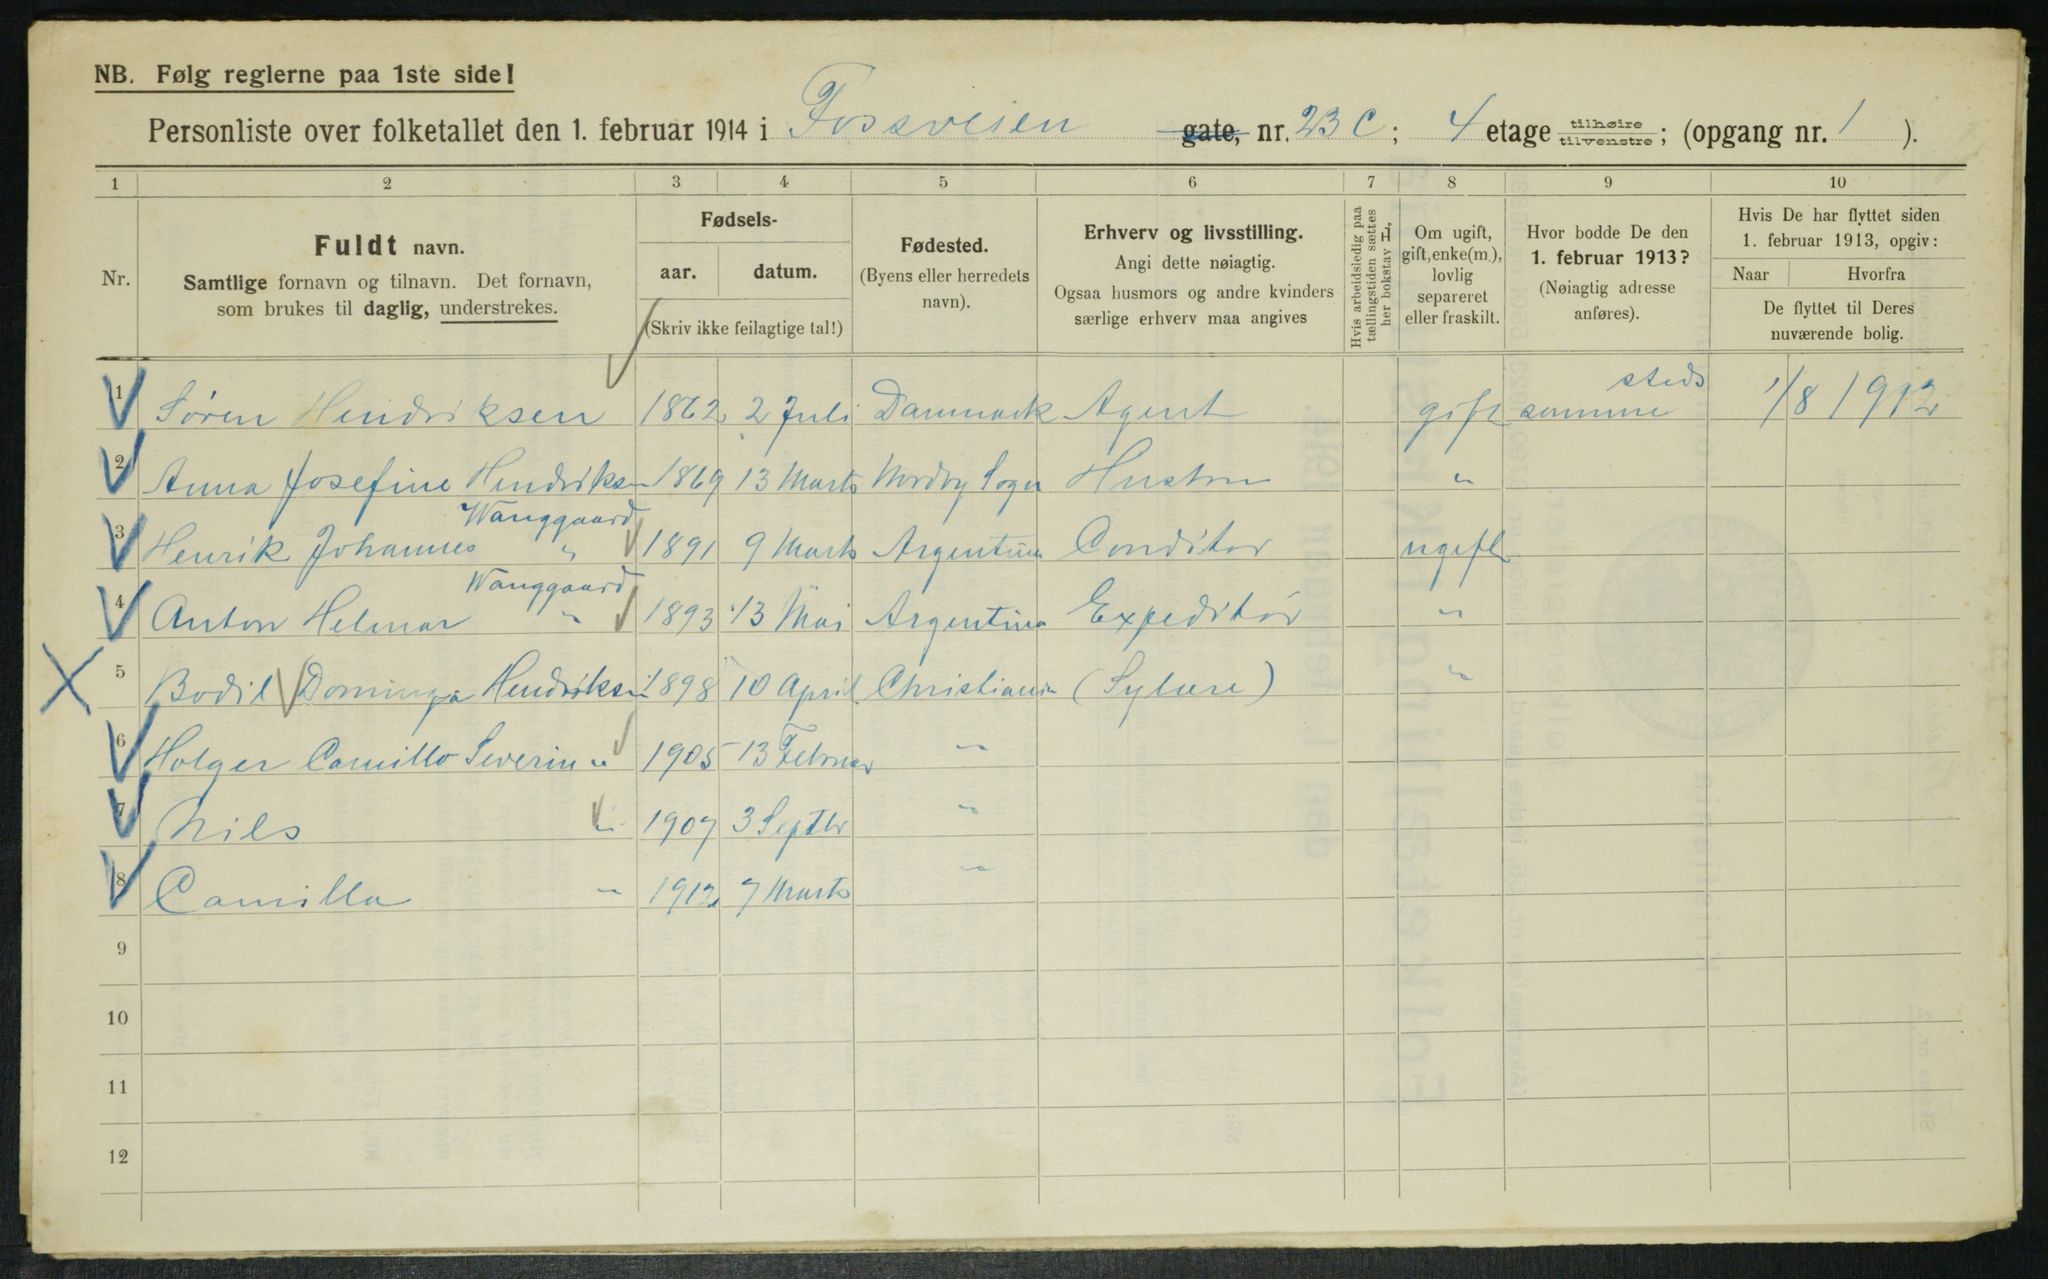 NB. Følg reglerne paa 1ste side!
Personliste over folketallet den 1. februar 1914 i Fossveien gate, nr. 23 C; 4 etage tilhøire tilvenstre; (opgang nr. 1 ).
1 2 3 4 5 6 7 8 9 10
Nr.
Fuldt navn.
Samtlige fornavn og tilnavn. Det fornavn,
som brukes til daglig, understrekes.
Fødsels-
aar. datum.
(Skriv ikke feilagtige tal!)
Fødested.
(Byens eller herredets
navn).
Erhverv og livsstilling.
Angi dette nøiagtig.
Ogsaa husmors og andre kvinders
særlige erhverv maa angives
Hvis arbeidsledig paa
tællingstiden sættes
her bokstav H.
Om ugift,
gift, enke(m.),
lovlig
separeret
eller fraskilt.
Hvor bodde De den
1. februar 1913?
(Nøiagtig adresse
anføres).
Hvis De har flyttet siden
1. februar 1913, opgiv:
Naar Hvorfra
De flyttet til Deres
nuværende bolig.
1 Søren Hendriksen 1862 2 Juli Danmark Agent gift samme steds 1/8 1912
2 Anna Josefine Hendriksen 1869 13 Marts Nordby Sogn Hustru "
Wanggaard
3 Henrik Johannes " 1891 9 Marts Argentina Conditor ugift
Wanggaard
4 Anton Helmar " 1893 13 Mai Argentina Expeditør "
5 Bodil Dominga Hendriksen 1898 10 April Christiania (Sylære) "
6 Holger Camillo Severin " 1905 13 Februar "
7 Nils " 1907 3 Septbr "
8 Camilla " 1912 7 Marts "
9
10
11
12